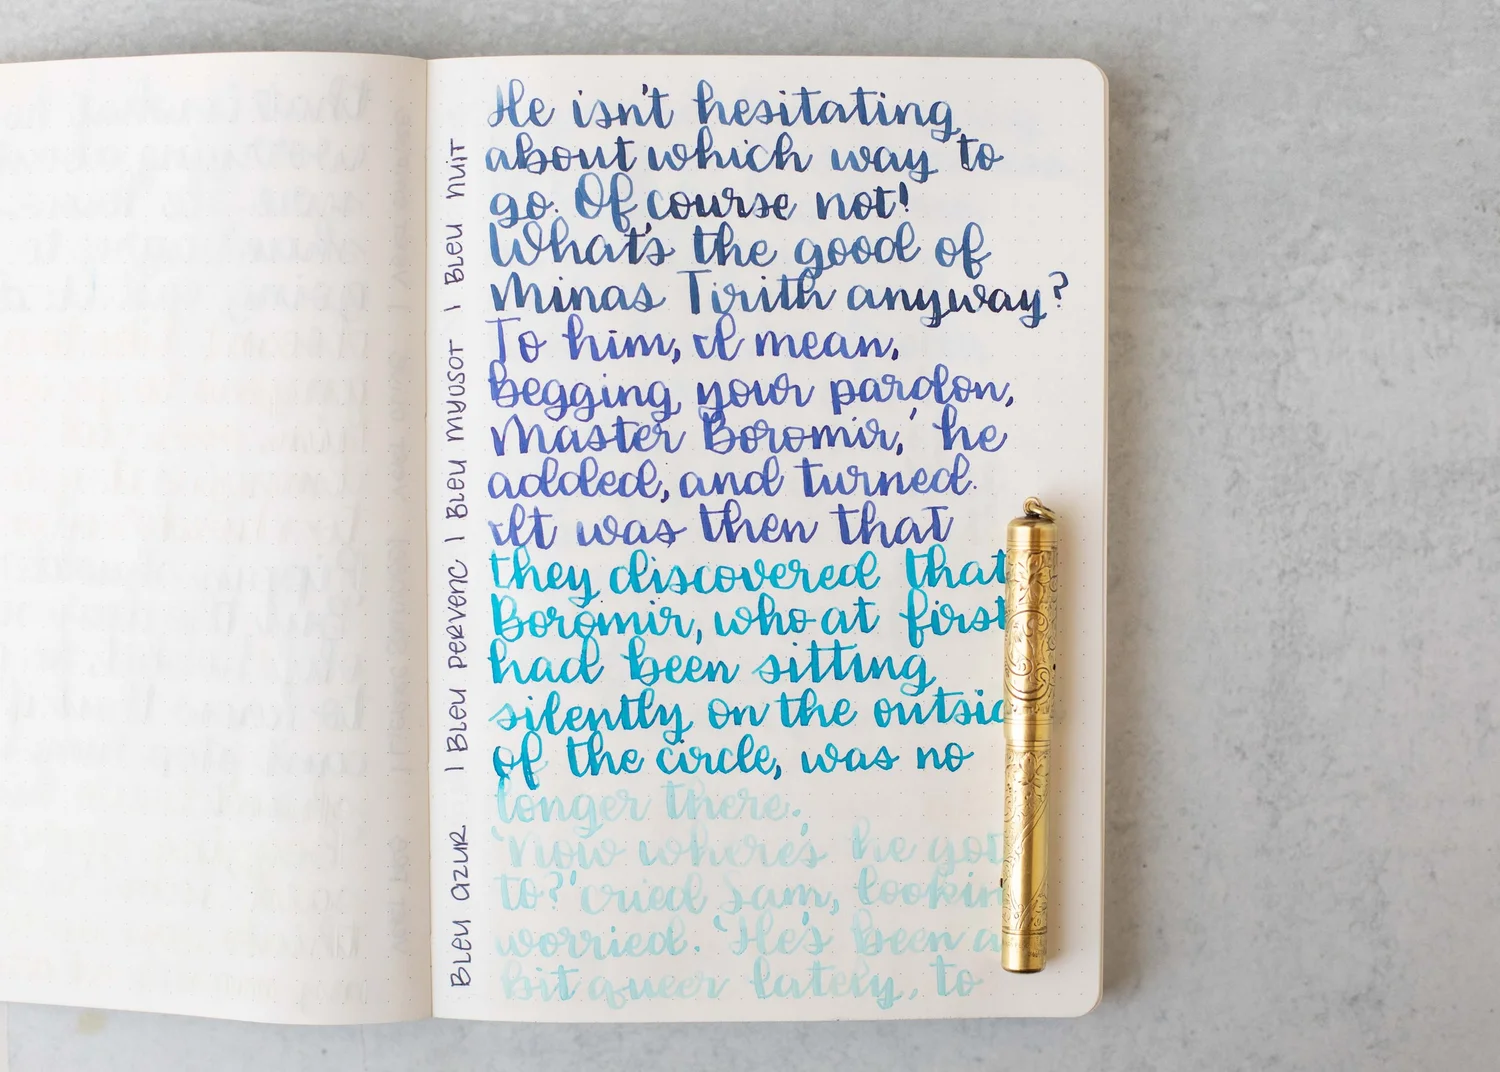 He isn't hesitating
about which way to
go. Of course not!
What's the good of
Minas Tirith anyway?
To him, I mean,
begging your pardon,
Master Boromir,' he
added, and turned.
It was then that
they discovered that
Boromir, who at first
had been sitting
silently on the outsid
of the circle, was no
longer there.
'Now where's he got
to?' cried Sam, lookin
worried. 'He's been a
bit queer lately, to
BLEU AZUR | BLEU PERVENC | BLEU MYOSOT | BLEU NUIT